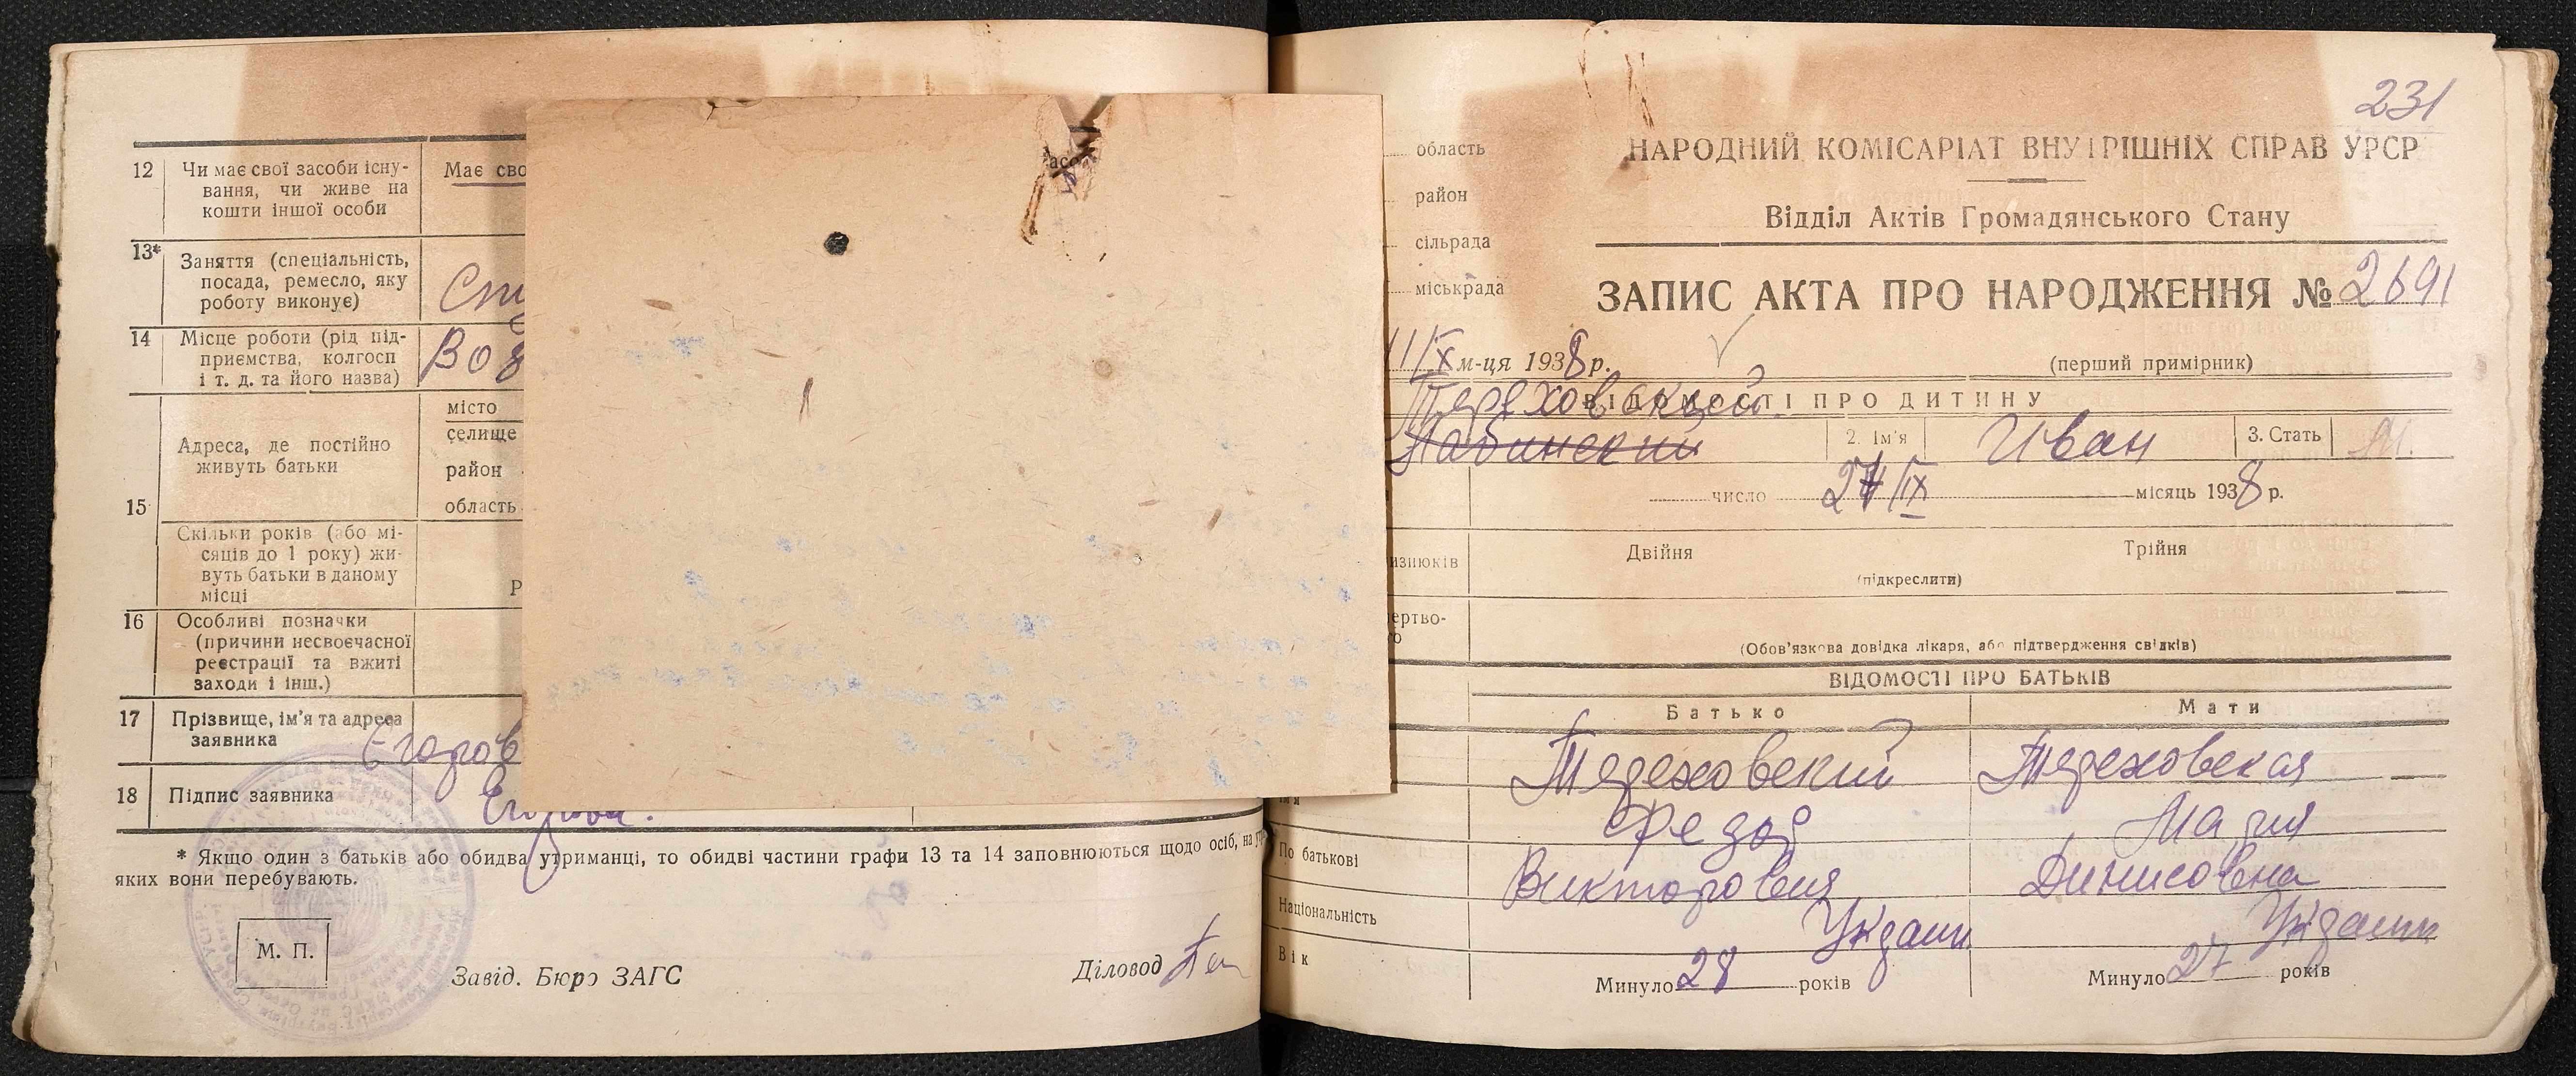 12 Чи має свої засоби існу-
вання, чи живе на
кошти іншої особи
Має сво
13* Заняття (спеціальність,
посада, ремесло, яку
роботу виконує)
14 Місце роботи (рід під-
приємства, колгосп
і т. д. та його назва)
15 Адреса, де постійно
живуть батьки
місто
селище
район
область
Скільки років (або мі-
сяців до 1 року) жи-
вуть батьки в даному
місці
16 Особливі позначки
(причини несвоєчасної
реєстрації та вжиті
заходи і інш.)
17 Прізвище, ім'я та адреса
заявника
Егоров
18 Підпис заявника
* Якщо один з батьків або обидва утриманці, то обидві частини графи 13 та 14 заповнюються щодо осіб, на
яких вони перебувають.
М. П.
Завід. Бюро ЗАГС
Діловод
231
область
район
сільрада
міськрада
НАРОДНИЙ КОМІСАРІАТ ВНУТРІШНІХ СПРАВ УРСР
Відділ Актів Громадянського Стану
ЗАПИС АКТА ПРО НАРОДЖЕННЯ № 2691
11/IX м-ця 1938 р.
(перший примірник)
ВІДОМОСТІ ПРО ДИТИНУ
Тереховский
2. Ім'я Иван 3. Стать М.
число IX місяць 1938 р.
изнюків
Двійня Трійня
(підкреслити)
ертво-
го
(Обов'язкова довідка лікаря, або підтвердження свідків)
ВІДОМОСТІ ПРО БАТЬКІВ
Батько Мати
Тереховский Тереховская
Ім'я Федор Мария
По батькові Викторович Динисовна
Національність Украин Украин
Вік Минуло 28 років Минуло 27 років